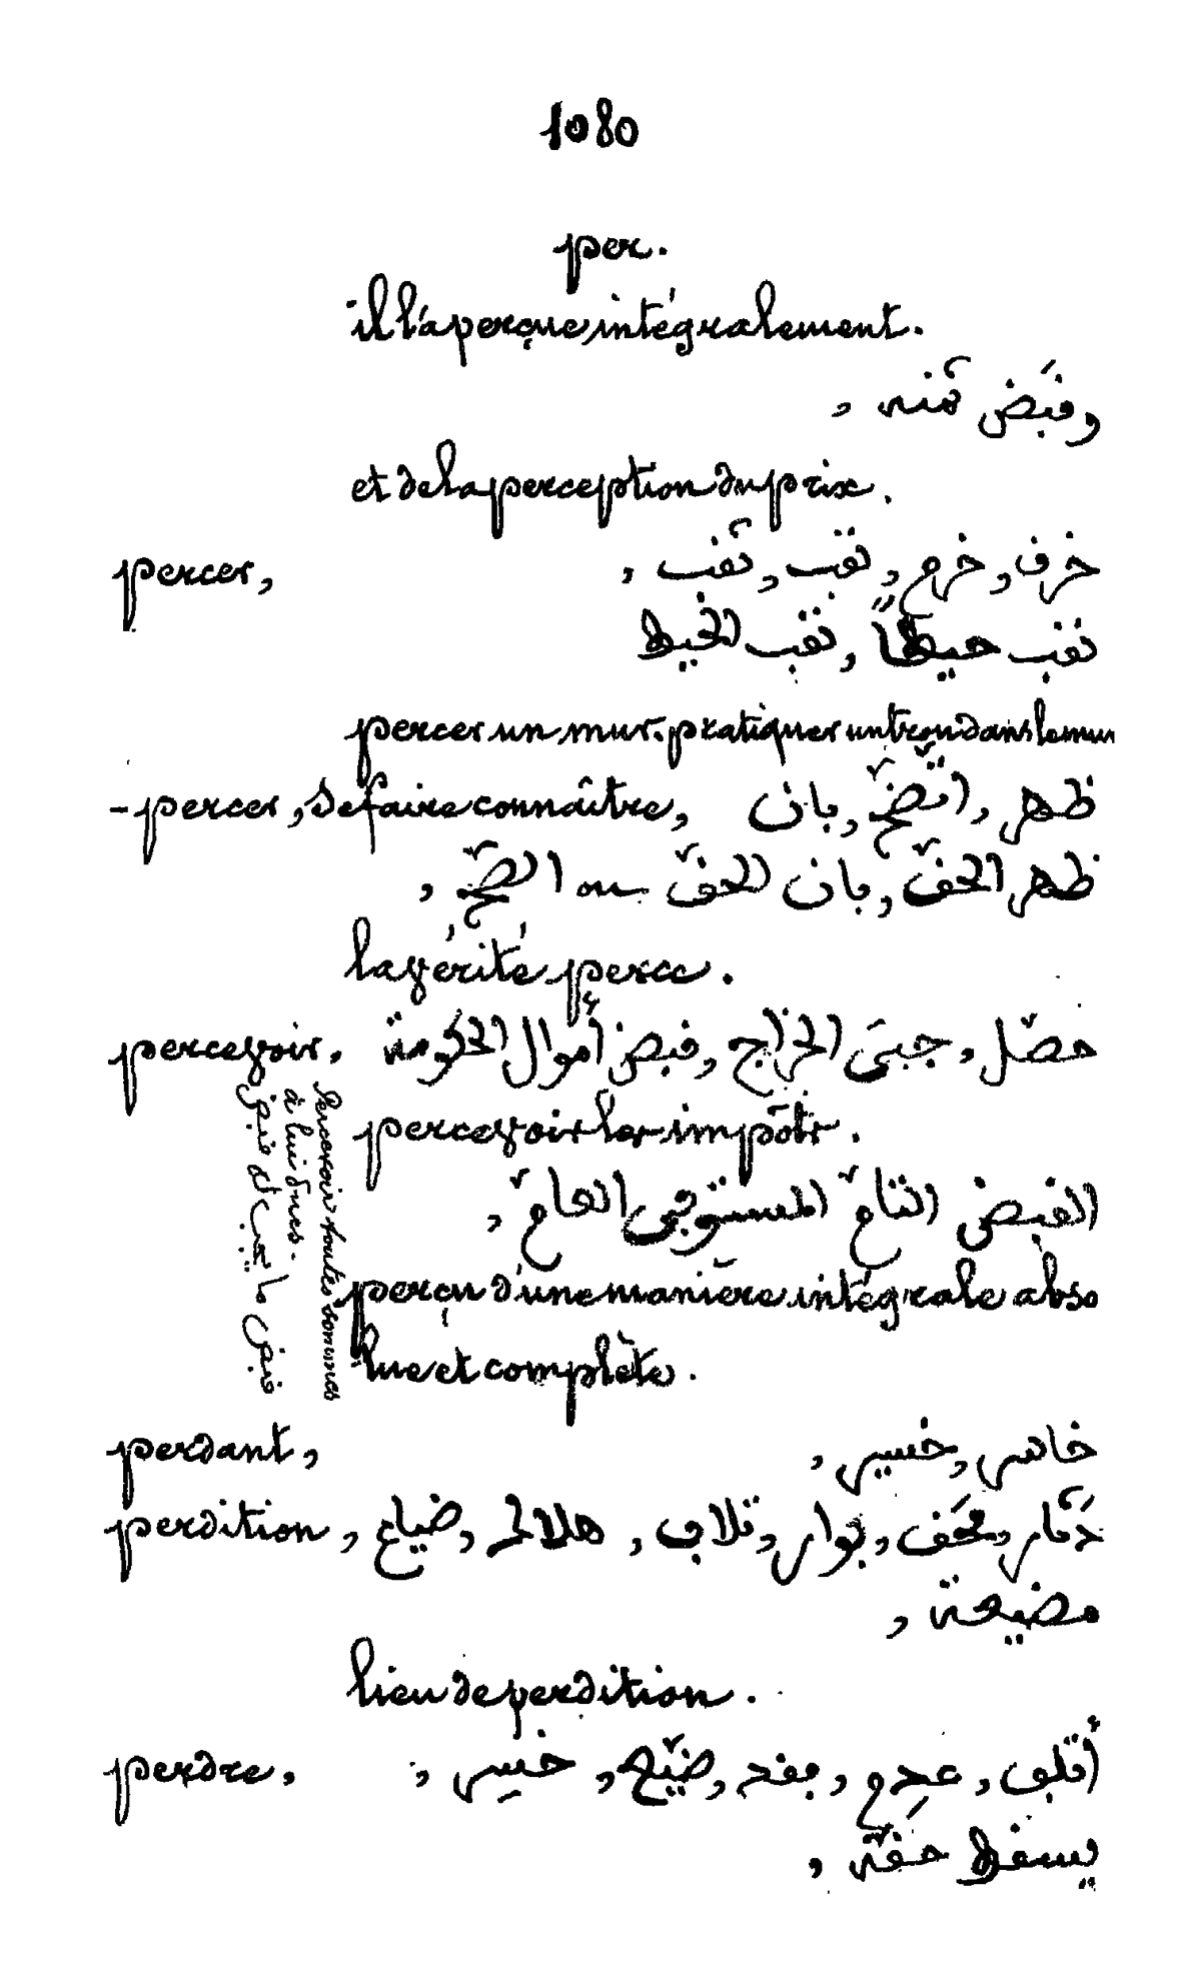 1080
per.
il l'a perçue intégralement.
وقبَض ثمنه ,
et de la perception du prix.
percer, خرق, خرم, نقب, ثقب ,
نقب حيطاً, نقب الحيط
percer un mur. pratiquer un trou dans le mur
- percer, se faire connaître, ظهر, اتّضح, بان
ظهر الحقّ, بان الحقّ ou اتضّح ,
la vérité perce.
percevoir. حصّل, جبَى الخراج, قبض أموال الحكومة
percevoir les impôts.
القبض التامّ المستوفى العامّ ,
perçu d'une manière intégrale abso
lue et complète.
Percevoir toutes sommes
à lui dues.
قبض ما يجب له قبض
perdant, خاسر, خسير ,
perdition, دَمار, محَق, بوار, تلاف, هلاك, ضياع ,
مضيعة ,
lieu de perdition.
perdre. أتلف, عدِم, فقد, ضيّع, خسِر ,
يسقط حقّه ,